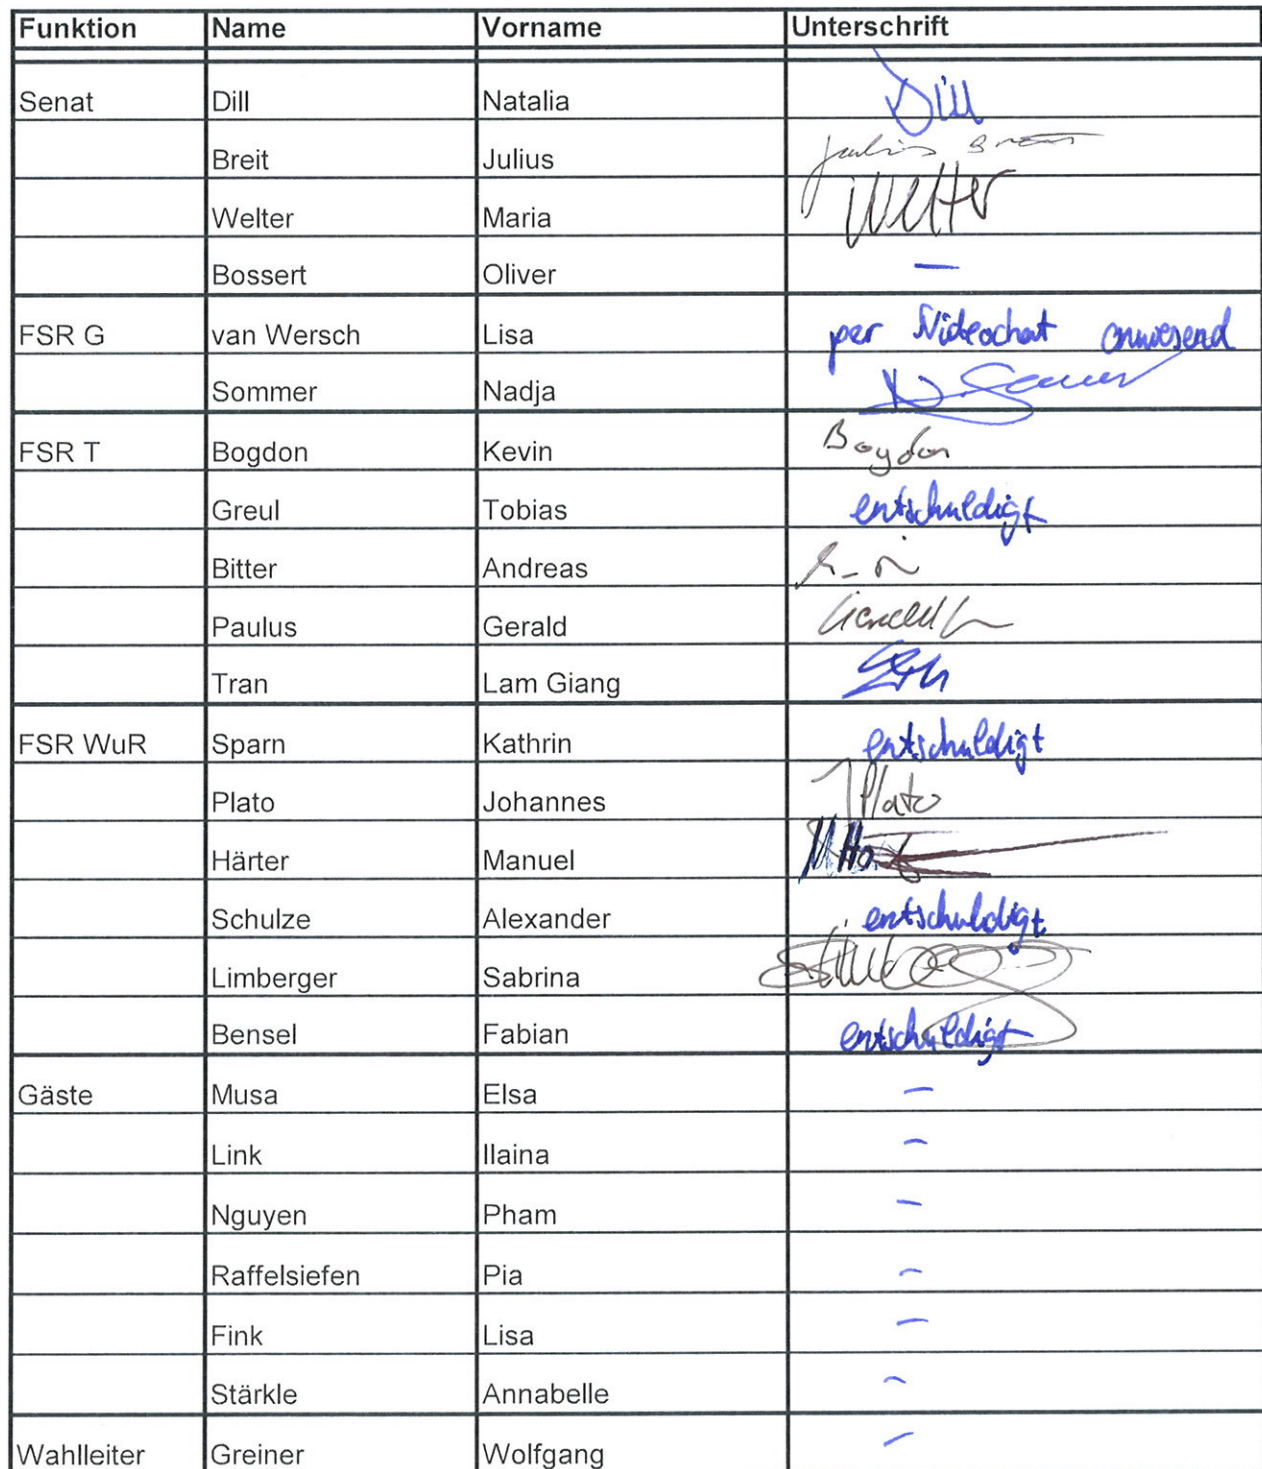 Funktion Name Vorname Unterschrift
Senat Dill Natalia Dill
Breit Julius Julius Breit
Welter Maria Welter
Bossert Oliver –
FSR G van Wersch Lisa per Videochat anwesend
Sommer Nadja
FSR T Bogdon Kevin Bogdon
Greul Tobias entschuldigt
Bitter Andreas
Paulus Gerald
Tran Lam Giang
FSR WuR Sparn Kathrin entschuldigt
Plato Johannes J Plato
Härter Manuel
Schulze Alexander entschuldigt
Limberger Sabrina
Bensel Fabian entschuldigt
Gäste Musa Elsa –
Link Ilaina –
Nguyen Pham –
Raffelsiefen Pia –
Fink Lisa –
Stärkle Annabelle –
Wahlleiter Greiner Wolfgang –